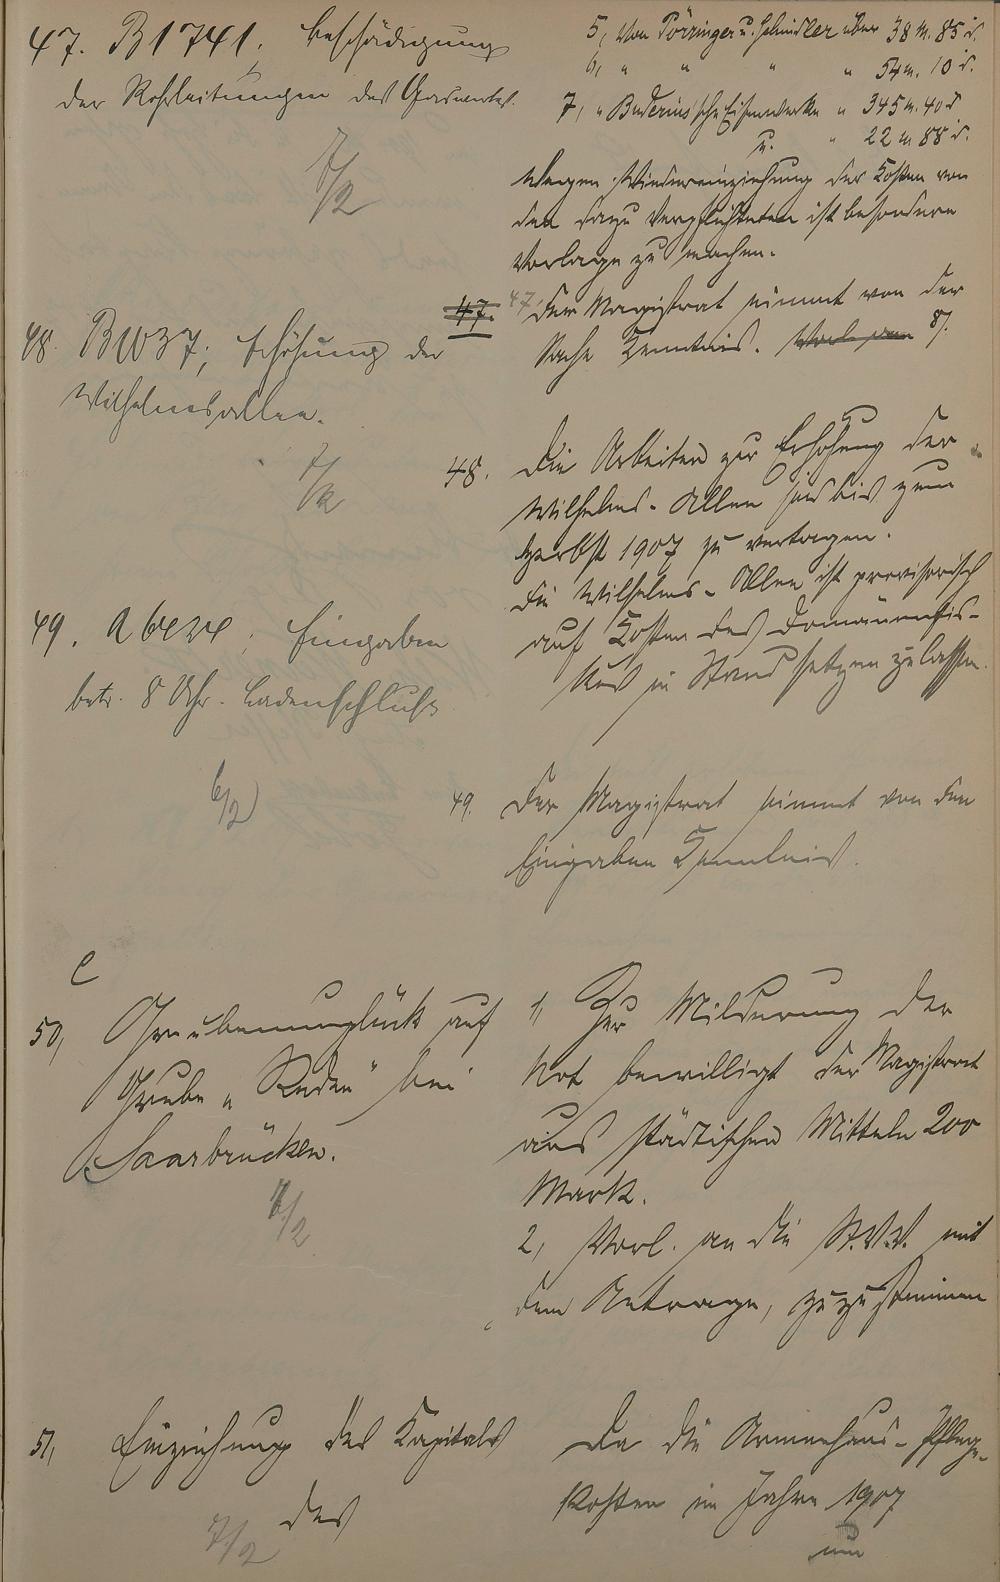 47. B 1741. Beschädigung
der Rohrleitungen des Gaswerkes.
7/2
5, Von Pörringer u. Schindler über 38 M. 85 d.
6, " " " " 54 M. 10 d.
7, " Buderus'sche Eisenwerke " 345 M. 40 d
u. " 22 M 88 d.
Wegen Wiedereinziehung der Kosten von
den dazu Verpflichteten ist besondere
Vorlage zu machen.
47. 47. Der Magistrat nimmt von der
Sache Kenntnis.
48. B 1037; Erhöhung der
Wilhelmsallee.
7/2
48. Die Arbeiten zur Erhöhung der
Wilhelms-Allee sind bis zum
Herbst 1907 zu vertagen.
Die Wilhelms-Allee ist provisorisch
auf Kosten des Domänenfis-
kus in Stand setzen zu lassen.
49. A Eingaben
betr. 8 Uhr-Ladenschluß
6/2
49. Der Magistrat nimmt von den
Eingaben Kenntnis.
C
50, Grubenunglück auf
Grube "Reden" bei
Saarbrücken.
7/2
1, Zur Milderung der
Not bewilligt der Magistrat
aus städtischen Mitteln 200
Mark.
2, Vorl. an die St.V.V. mit
dem Antrage, zuzustimmen
51, Einziehung des Kapitals
des
7/2
Da die Armenhaus-Pflege-
kosten im Jahre 1907
nun